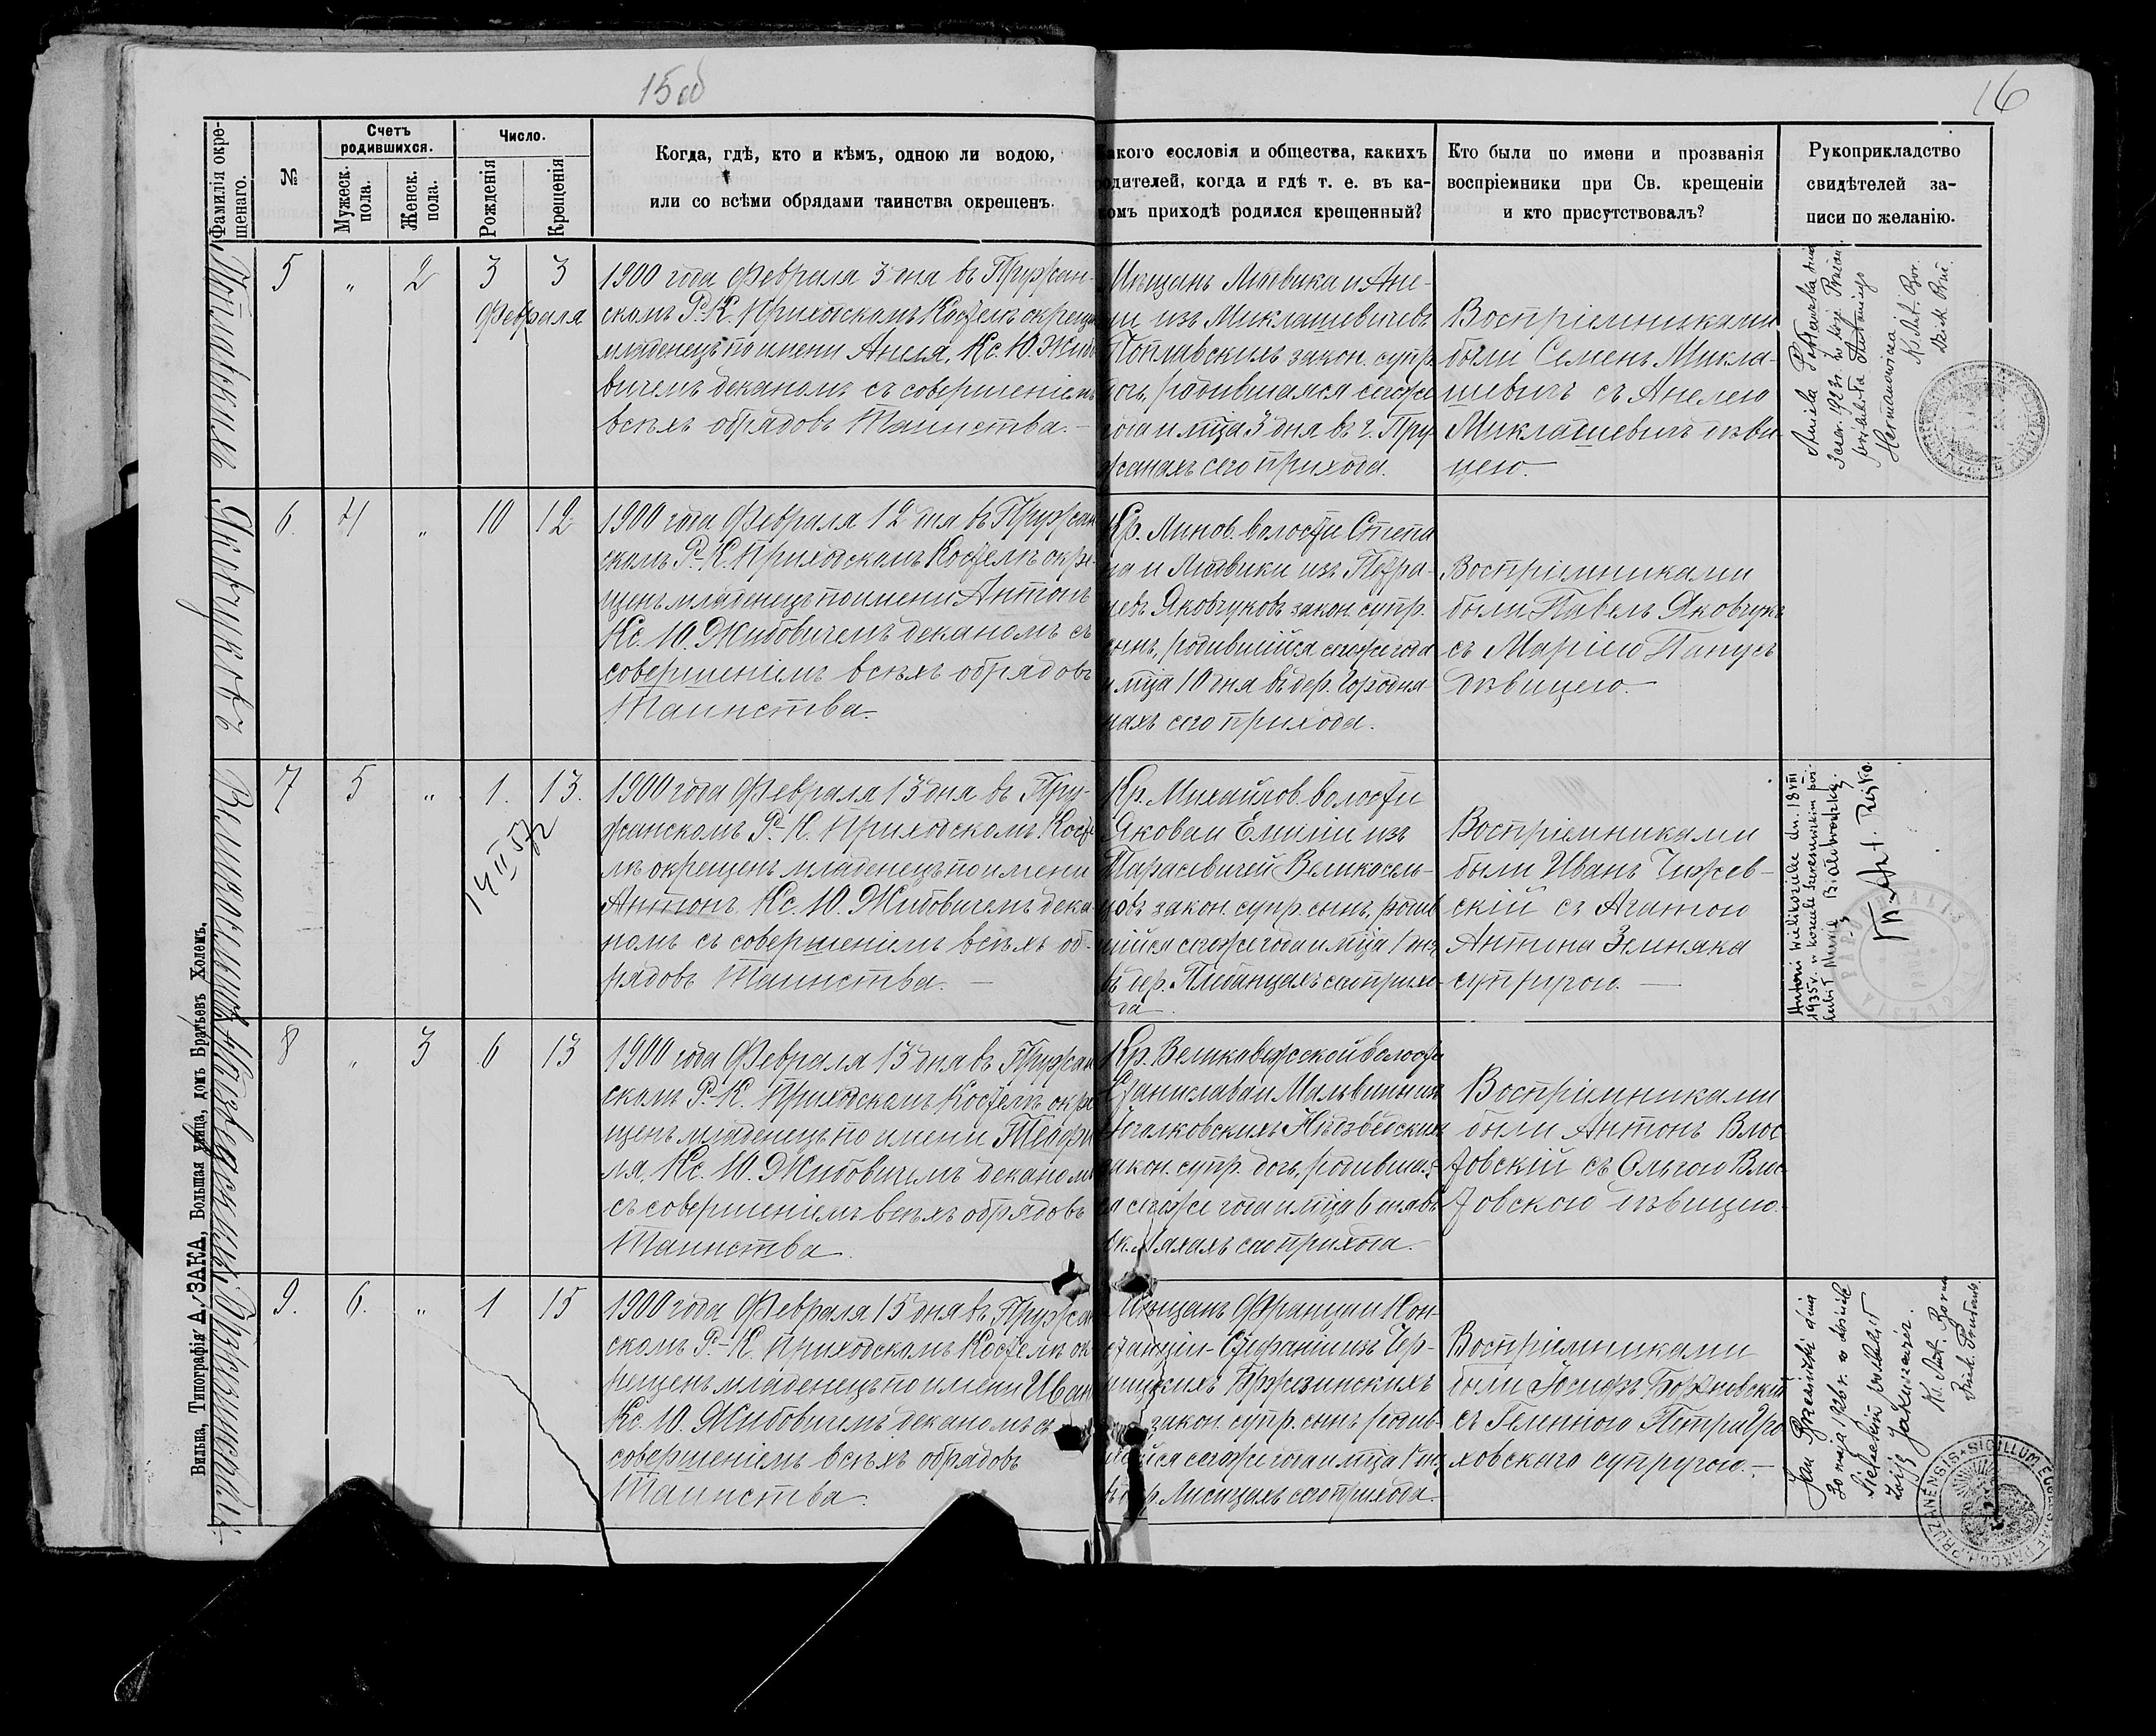 15об
16
Фамилія окре-
щенаго.
№
Счетъ
родившихся.
Мужеск.
пола.
Женск.
пола.
Число.
Рожденія
Крещенія
Когда, гдѣ, кто и кѣмъ, одною ли водою,
или со всѣми обрядами таинства окрещенъ.
акого сословія и общества, какихъ
одителей, когда и гдѣ т. е. въ ка-
омъ приходѣ родился крещенный?
Кто были по имени и прозванія
воспріемники при Св. крещеніи
и кто присутствовалъ?
Рукоприкладство
свидѣтелей за-
писи по желанію.
5 „ 2 3 3
Февраля
1900 года Февраля 3 дня въ Пружан-
скомъ Р.-К. Приходскомъ Костелѣ окреще
младенецъ по имени Анеля, Кс. Ю. Жидо
вичемъ деканомъ съ совершеніемъ
всѣхъ обрядовъ Таинства. –
Мѣщанъ Людвика и Ане-
ли изъ Миклашевичевъ
Поплавскихъ закон. супр.
дочь, родившаяся сегоже
года и мѣца 3 дня въ г. Пру-
жанахъ сего прихода.
Воспріемниками
были Семенъ Микла-
шевичъ съ Анелею
Миклашевичъ дѣви-
цею.
Aniela
Hermanowicza
6. 4 „ 10 12
1900 года Февраля 12 дня въ Пружан
скомъ Р.-К. Приходскомъ Костелѣ окре-
щенъ младенецъ по имени Антонъ
Кс. Ю. Жидовичемъ деканомъ съ
совершеніемъ всѣхъ обрядовъ
Таинства.
Яковчуковъ
Кр. Линов. волости Степа
на и Людвики изъ Петра-
Яковчуковъ закон. супр.
сынъ, родившійся сегоже года
и мѣца 10 дня въ дер. Городня-
нахъ сего прихода.
Воспріемниками
были Павелъ Яковчукъ
съ Маріею Папусь
дѣвицею.
7 5 „ 1. 13.
1900 года Февраля 13 дня въ Пру-
жанскомъ Р.-К. Приходскомъ Косте
лѣ окрещенъ младенецъ по имени
Антонъ Кс. Ю. Жидовичемъ дека
номъ съ совершеніемъ всѣхъ об-
рядовъ Таинства. –
Кр. Михайлов. волости
Якова и Емиліи изъ
Тарасевичей Великосель-
цовъ закон. супр. сынъ, родив
шійся сегоже года и мѣца 1 дня
въ дер. Плебанцахъ сего прихо-
да.
Воспріемниками
были Иванъ Чижев-
скій съ Агатою
Антона Земняка
супругою.
Antoni Wielikosielec dn. 18 VIII
1935 r. w kosciele
8 „ 3 6 13
1900 года Февраля 13 дня въ Пружан
скомъ Р.-К. Приходскомъ Костелѣ окре
щенъ младенецъ по имени Теофи
ля, Кс. Ю. Жидовичемъ деканомъ
съ совершеніемъ всѣхъ обрядовъ
Таинства.
Кр. Великовежской волости
Станислава и Мальвины изъ
закон. супр. дочь, родивша-
ся сегоже года и мѣца 6 дня въ
сего прихода.
Воспріемниками
были Антонъ Влос
товскій съ Ольгою Влос
товскою дѣвицею.
9. 6. „ 1 15
1900 года Февраля 15 дня въ Пружан
скомъ Р.-К. Приходскомъ Костелѣ ок
рещенъ младенецъ по имени Иван
Кс. Ю. Жидовичемъ деканомъ съ
совершеніемъ всѣхъ обрядовъ
Таинства.
Мѣщанъ Франца и Кон-
станціи-Стефаніи изъ Чер-
ницкихъ Бржезинскихъ
закон. супр. сынъ родив-
шійся сегоже года и мѣца 1 дня
въ дер. Лисицахъ сего прихода.
Воспріемниками
были Іосифъ
съ Геленою Петра Гро
ховскаго супругою. –
Jan Brzeziński dnia
30 maja 1926 r. w kościele
Вильна, Типографія А. ЗАКА, Большая улица, домъ Братьевъ Холемъ.